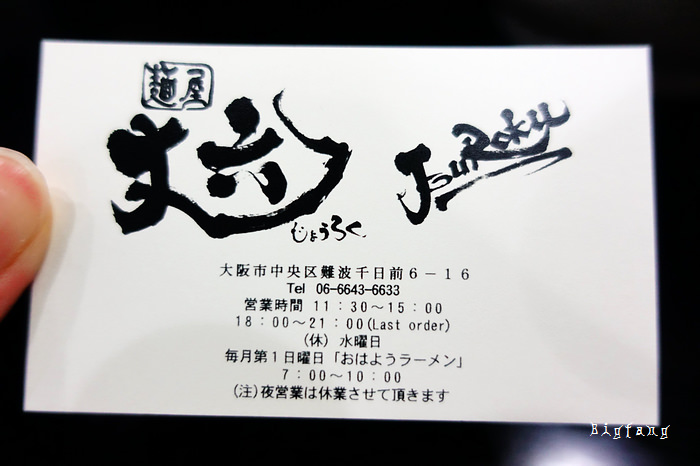 麺屋
丈六
じょうろく
JouRoku
大阪市中央区難波千日前6－16
Tel 06-6643-6633
営業時間 11：30～15：00
18：00～21：00(Last order)
(休) 水曜日
毎月第1日曜日「おはようラーメン」
7：00～10：00
(注)夜営業は休業させて頂きます
Bigfang